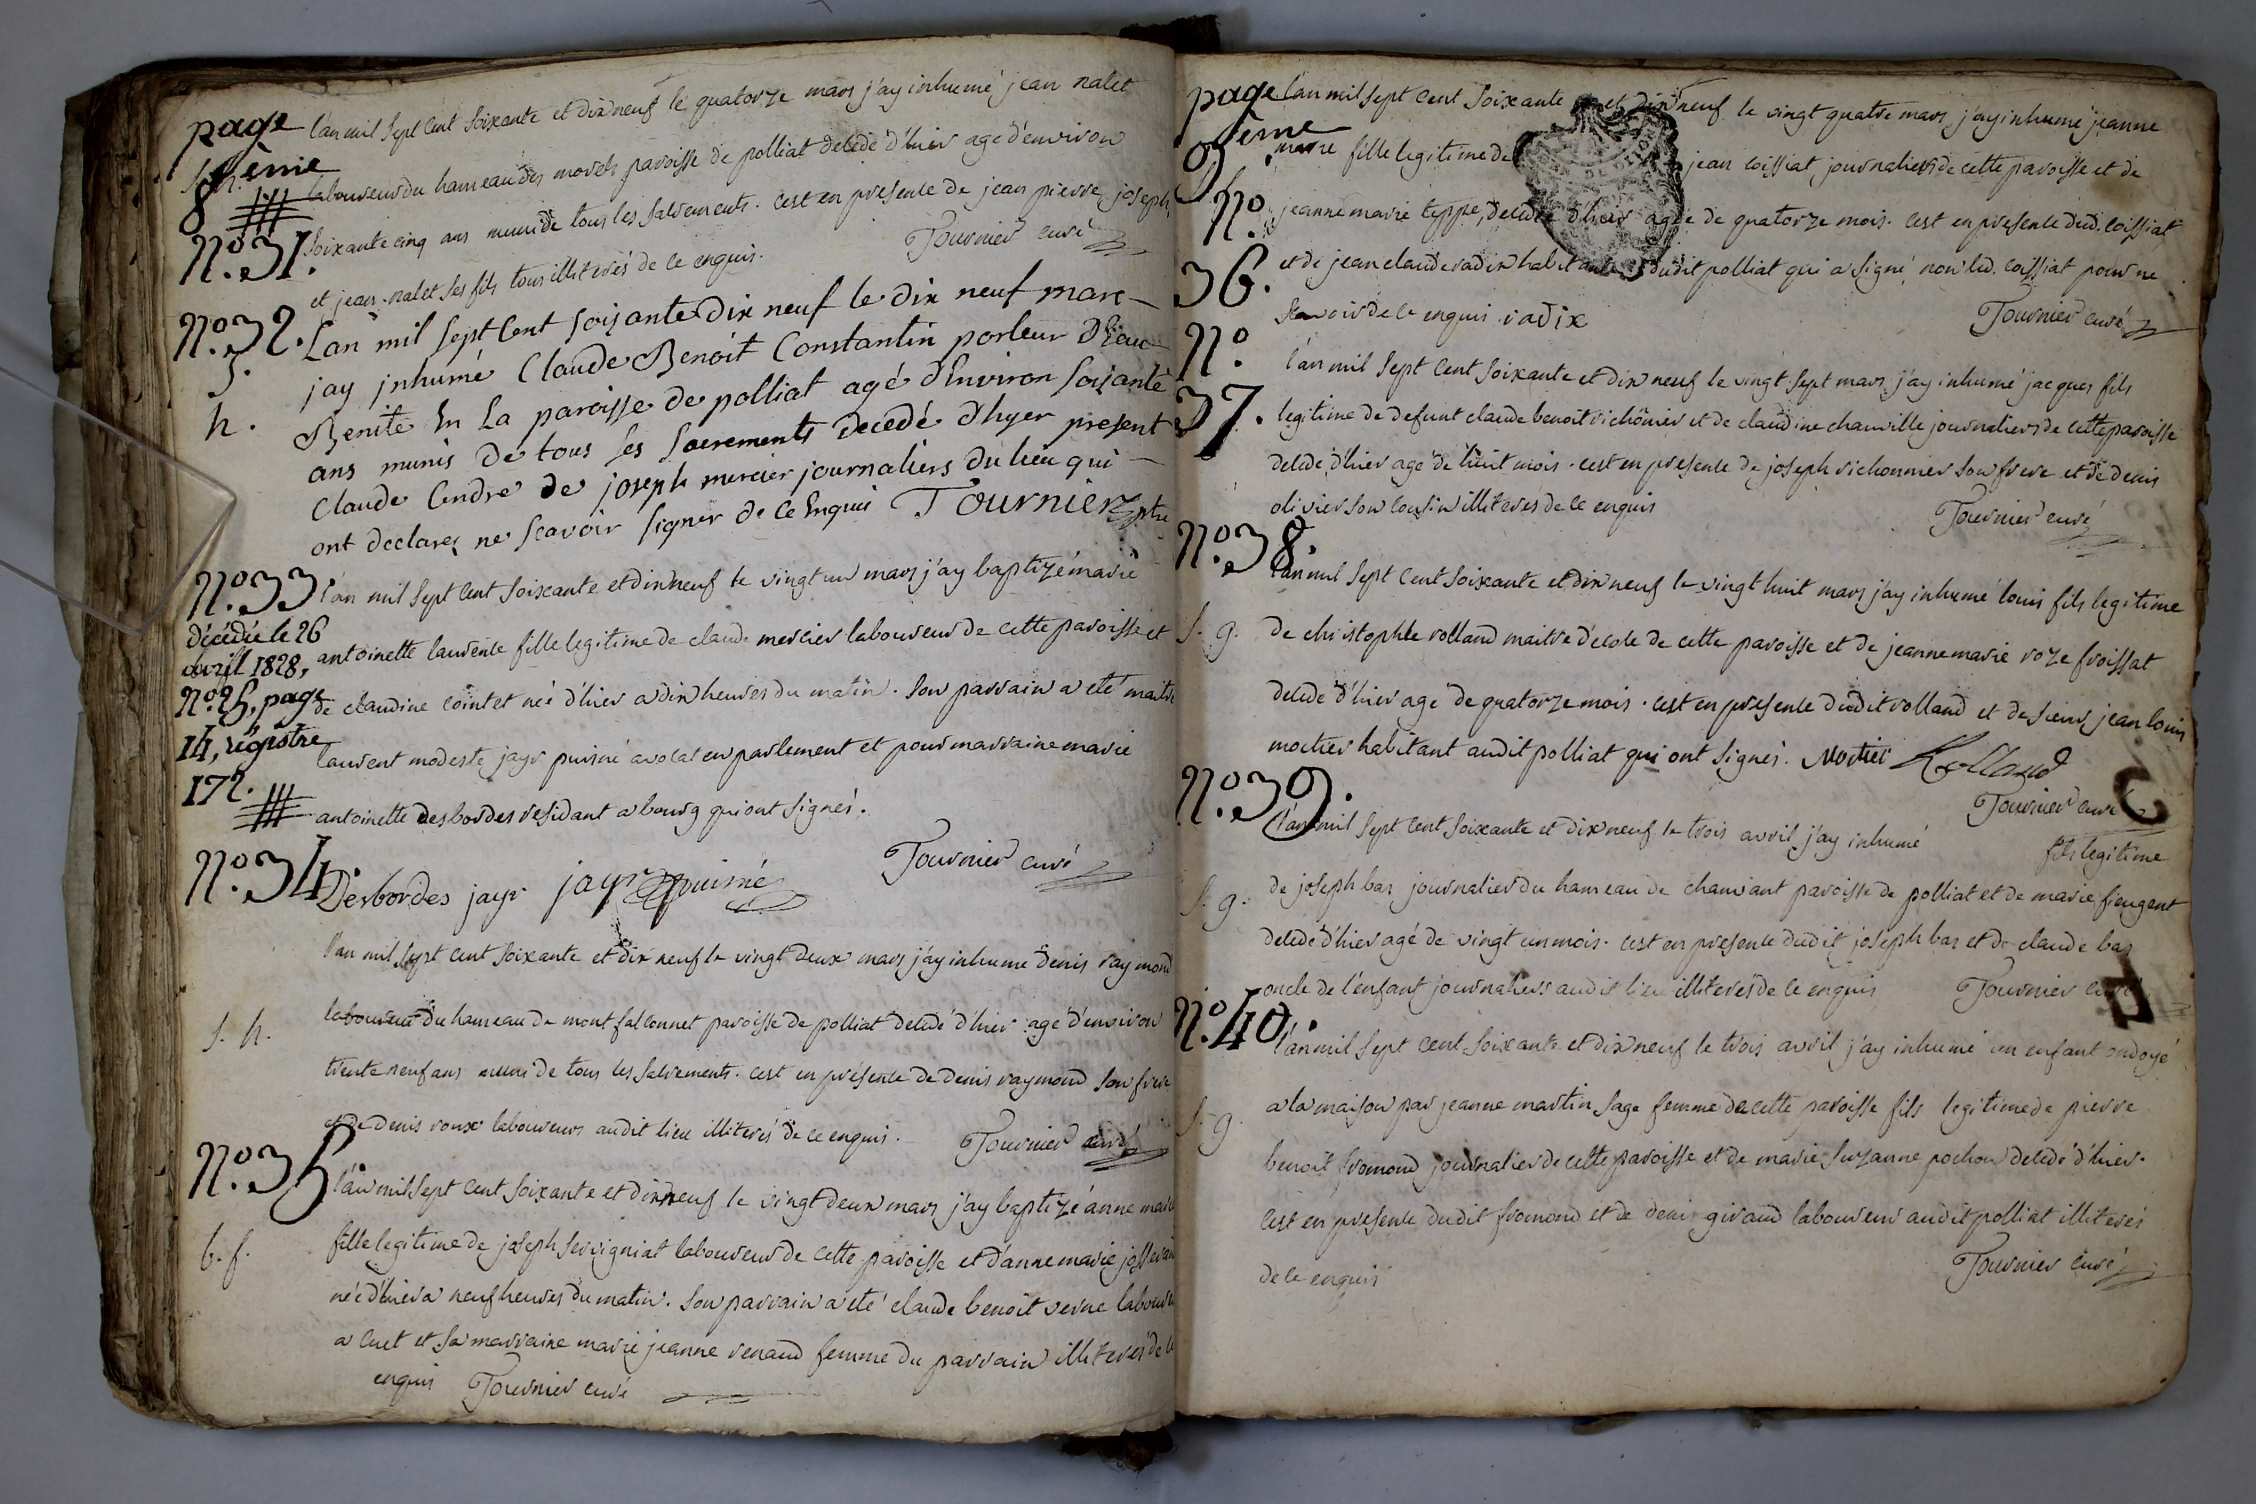 page
8ème
S. h.
N.º 31.
l'an mil sept cent soixante et dix neuf le quatorze mars j'ay inhumé jean nalet
laboureur du hameau des morels paroisse de polliat decede d'hier age d'environ
soixante cinq ans muni de tous les sacrements. c'est en presence de jean pierre, joseph,
et jean nalet ses fils tous illiterés de ce enquis.
Tournier curé
N.º 32.
S.
h.
Lan mil sept Cent soisante Dix neuf le Dix neuf mars
jay jnhumé Claude Benoit Constantin porteur D'Eau
Benite En La paroisse de polliat agé d'Environ soisante
ans munis De tous ses sacrements decedé d'hyer present
Claude Cendre de joseph mercier journaliers Du lieu qui
ont declares ne scavoir signer de ce Enquis Tournier ptre
N.º 33.
décédée le 26
avril 1828,
N.º 25, page
14, régistre
172.
l'an mil sept cent soixante et dix neuf le vingt un mars j'ay baptizé marie
antoinette laurence fille legitime de claude mercier laboureur de cette paroisse et
de claudine cointet née d'hier a dix heures du matin. son parrain a eté maitre
laurent modeste jayr puisné avocat en parlement et pour marraine marie
antoinette desbordes residant a bourg qui ont signés.
Desbordes jayr jayr puiné
Tournier curé
N.º 34.
S. h.
l'an mil sept cent soixante et dix neuf le vingt deux mars j'ay inhume denis raymond
laboureur du hameau de mont falconnet paroisse de polliat decedé d'hier age d'environ
trente neuf ans muni de tous les sacrements. c'est en presence de denis raymond son frere
et de denis roux laboureurs audit lieu illiterés de ce enquis.
Tournier curé
N.º 35
b. f.
l'an mil sept cent soixante et dix neuf le vingt deux mars j'ay baptizé anne marie
fille legitime de joseph servigniat laboureur de cette paroisse et d'anne marie
née d'hier a neuf heures du matin. son parrain a eté claude benoit verne
a cuet et sa marraine marie jeanne renaud femme du parrain illiterés de ce
enquis Tournier curé
page
9ème
N.º
36.
l'an mil sept cent soixante et dix neuf le vingt quatre mars j'ay inhumé jeanne
marie fille legitime de jean coissiat, journaliers de cette paroisse et de
jeanne marie teppe, decedée d'hier agée de quatorze mois. c'est en presence dud. coissiat
et de jean claude vadix habitants dudit polliat qui a signé, non led. coissiat pour ne
scavoir de ce enquis vadix
Tournier curé
N.º
37.
l'an mil sept cent soixante et dix neuf le vingt sept mars j'ay inhumé jacques fils
legitime de defunt claude benoit richonnier et de claudine chanville journaliers de cette paroisse
decedé d'hier agé de huit mois. c'est en presence de joseph richonnier son frere et de denis
olivier son cousin illiterés de ce enquis
Tournier curé
N.º 38.
S. g.
l'an mil sept cent soixante et dix neuf le vingt huit mars j'ay inhumé louis fils legitime
de christophle rolland maitre d'ecole de cette paroisse et de jeanne marie roze froissat
decede d'hier age de quatorze mois. c'est en presence dudit rolland et de sieur jean louis
mortier habitant audit polliat qui ont signés. Mortier Rolland
Tournier curé
N.º 39.
S. g.
l'an mil sept cent soixante et dix neuf le trois avril j'ay inhumé
fils legitime
de joseph bas journalier du hameau de chamant paroisse de polliat et de marie fieugent
decedé d'hier agé de vingt un mois. c'est en presence dudit joseph bas et de claude bas
oncle de l'enfant journaliers audit lieu illiterés de ce enquis Tournier curé
N.º 40.
S. g.
l'an mil sept cent soixante et dix neuf le trois avril j'ay inhumé un enfant ondoyé
a la maison par jeanne martin sage femme de cette paroisse fils legitime de pierre
benoit fromond journalier de cette paroisse et de marie suzanne pochon decedé d'hier.
c'est en presence dudit fromond et de denis giraud laboureur audit polliat illiterés
de ce enquis
Tournier curé